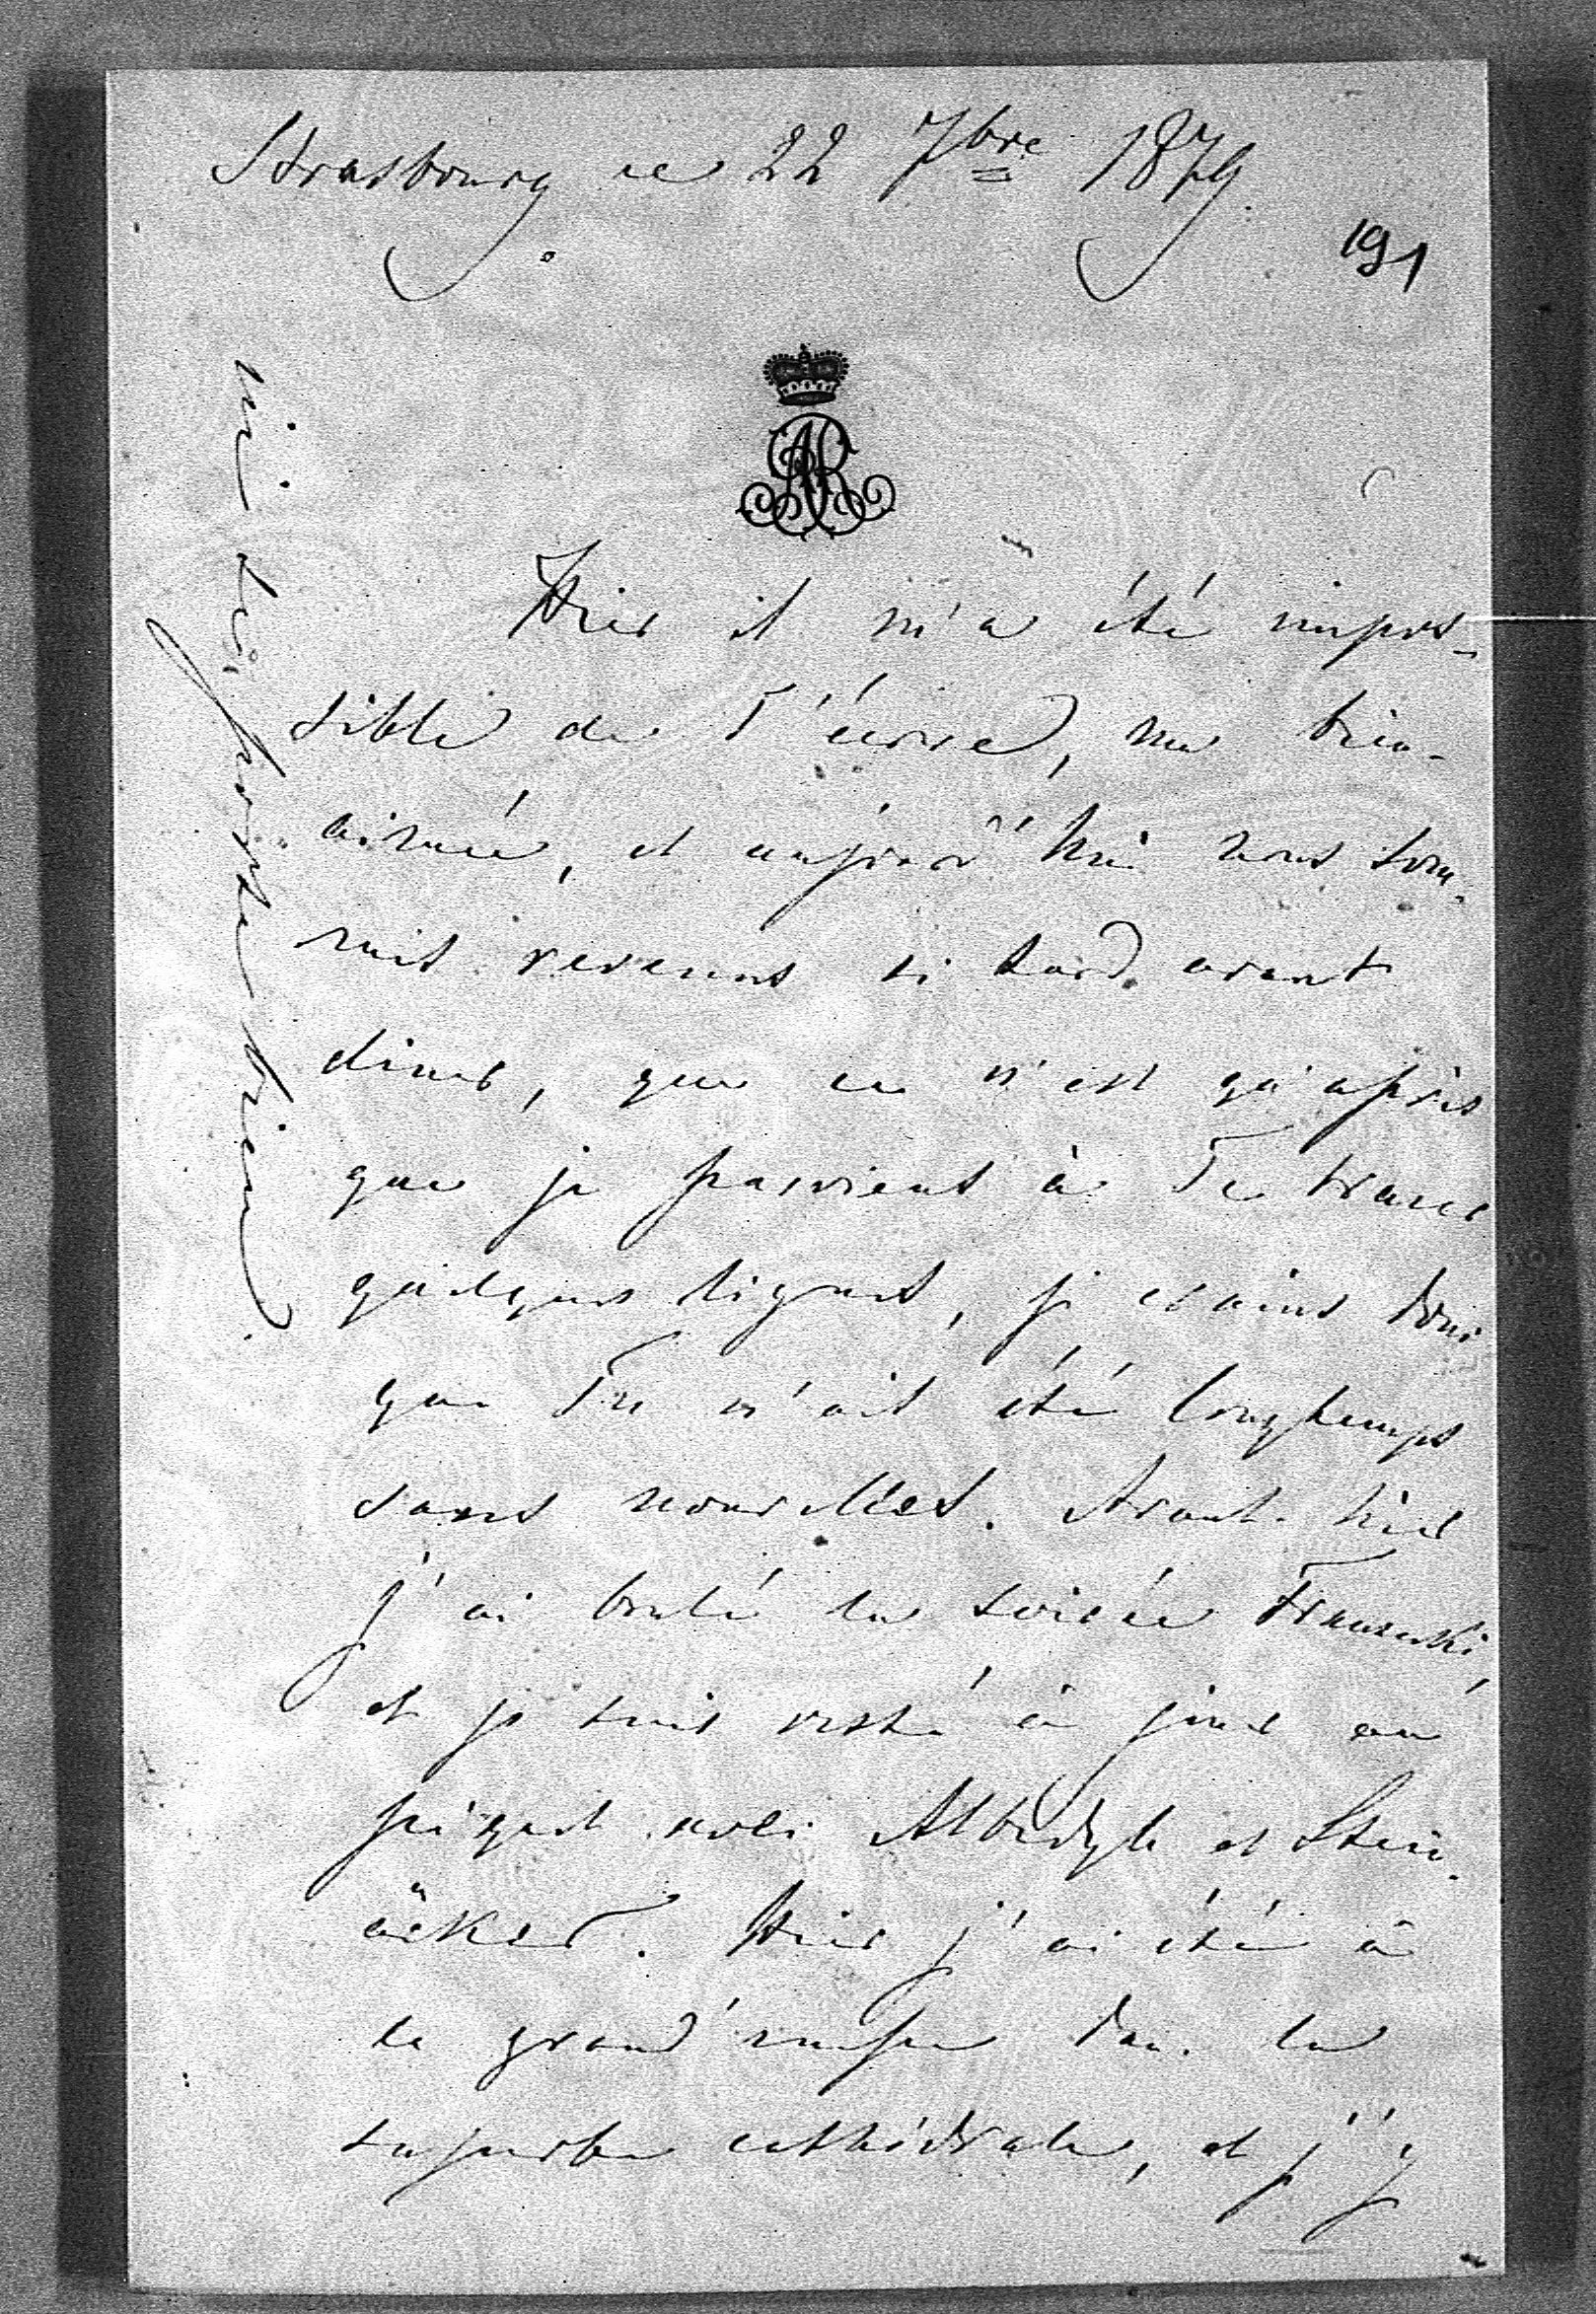 Strasbourg ce 22 7bre 1879.
191
AR
Hier il m'a été impos-
sible de T'écrire, ma bien-
aimée, et aujourd'hui nous som-
mes revenus si tard avant
diner, que ce n'est qu'après
que je parviens à Te tracer
quelques lignes, je crains donc
que Tu n'ait été longtemps
sans nouvelles. Avant-hier
j'ai brulé la soirée Fransecki,
et je suis resté à jouer au
piquet avec Albedyll et Stein-
äcker. Hier j'ai été à
la grand'messe dans la
superbe cathédrale, et j'y